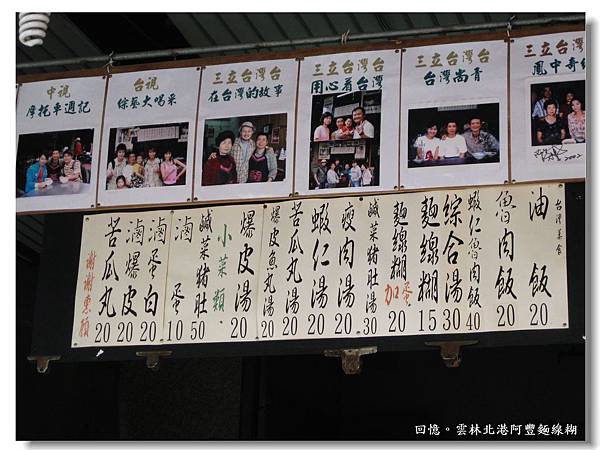 中視
摩托車週記
台視
綜藝大喝采
三立台灣台
在台灣的故事
三立台灣台
用心看台灣
三立台灣台
台灣尚青
三立台灣
鳳中奇緣
2002
台灣美食
油飯 20
魯肉飯 20
蝦仁魯肉飯 40
綜合湯 30
麵線糊 15
麵線糊加蛋 20
鹹菜豬肚湯 30
瘦肉湯 20
蝦仁湯 20
苦瓜丸湯 20
爆皮魚丸湯 20
爆皮湯 20
小菜類:
鹹菜豬肚 50
滷蛋 10
滷蛋白 20
滷爆皮 20
苦瓜丸 20
謝謝惠顧
回憶。雲林北港阿豐麵線糊